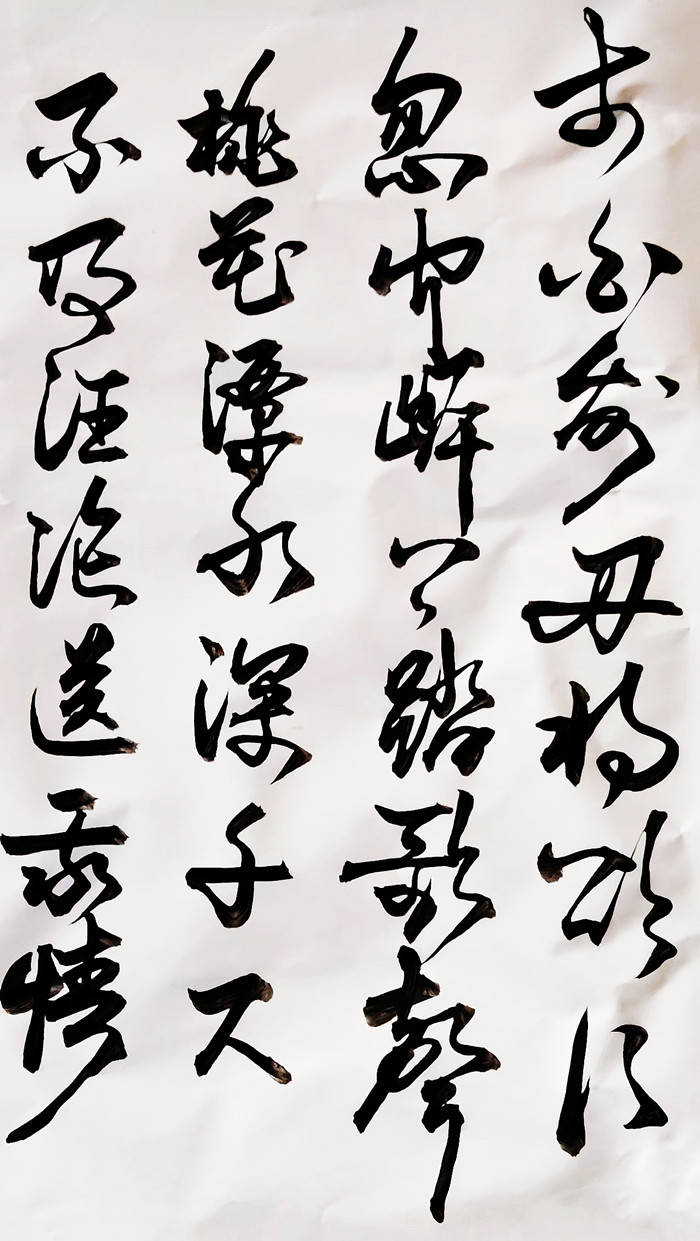 李白乘舟將欲行
忽聞岸上踏歌聲
桃花潭水深千尺
不及汪沦送我情